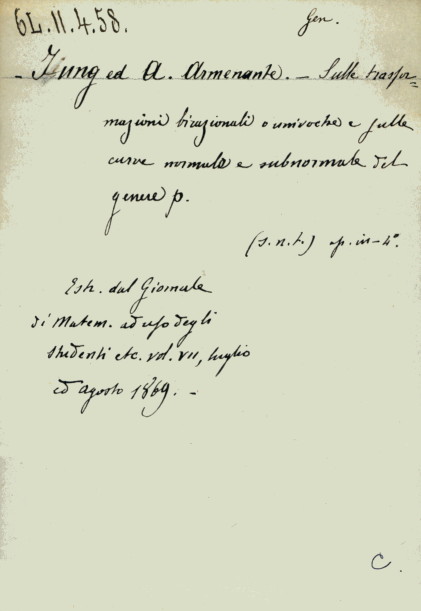 6L.11.4.58.
Gen.
- Jung ed A. Armenante. - Sulle trasfor=
mazioni birazionali o univoche e sulle
curve normali e subnormali del
genere p.
(s.n.t.) op. in-4°.
Estr. dal Giornale
di Matem. ad uso degli
studenti etc. vol. VII, luglio
ed agosto 1869. -
C.